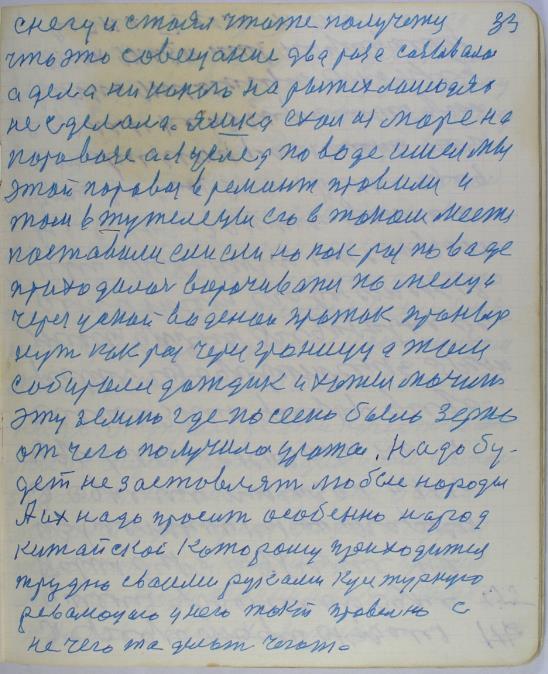 снегу и стоял чтоже получему 33
что это совещание два раза созвала
а дела ни на рыжих лошадях
не сделала. Яшка ехал из море на
паровозе а вуслед по воде шисл мы
этой паровоз в ремонт провили и
там в его в таком месте
поставили если но как раз по ваде
приходилос ворочивати по
через уской воденой праток
нут как раз через границу а там
собирали дождик и хотели мочить
эту землю где посеено было зерно
от чего получила урожа. Надо бу-
дет не заставлят любые народы
А их надо просит особенно народ
китайской Которому приходится
трудно своими руками Культурную
у него такт провелно с
не чего та делат чегото.